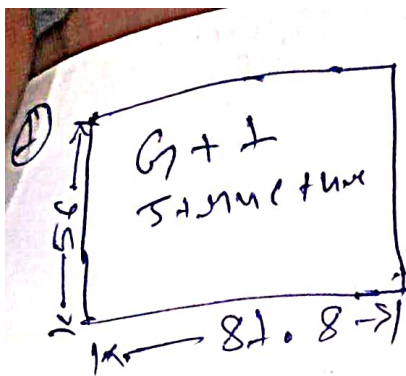 ①
G+1
structure
56
81.8